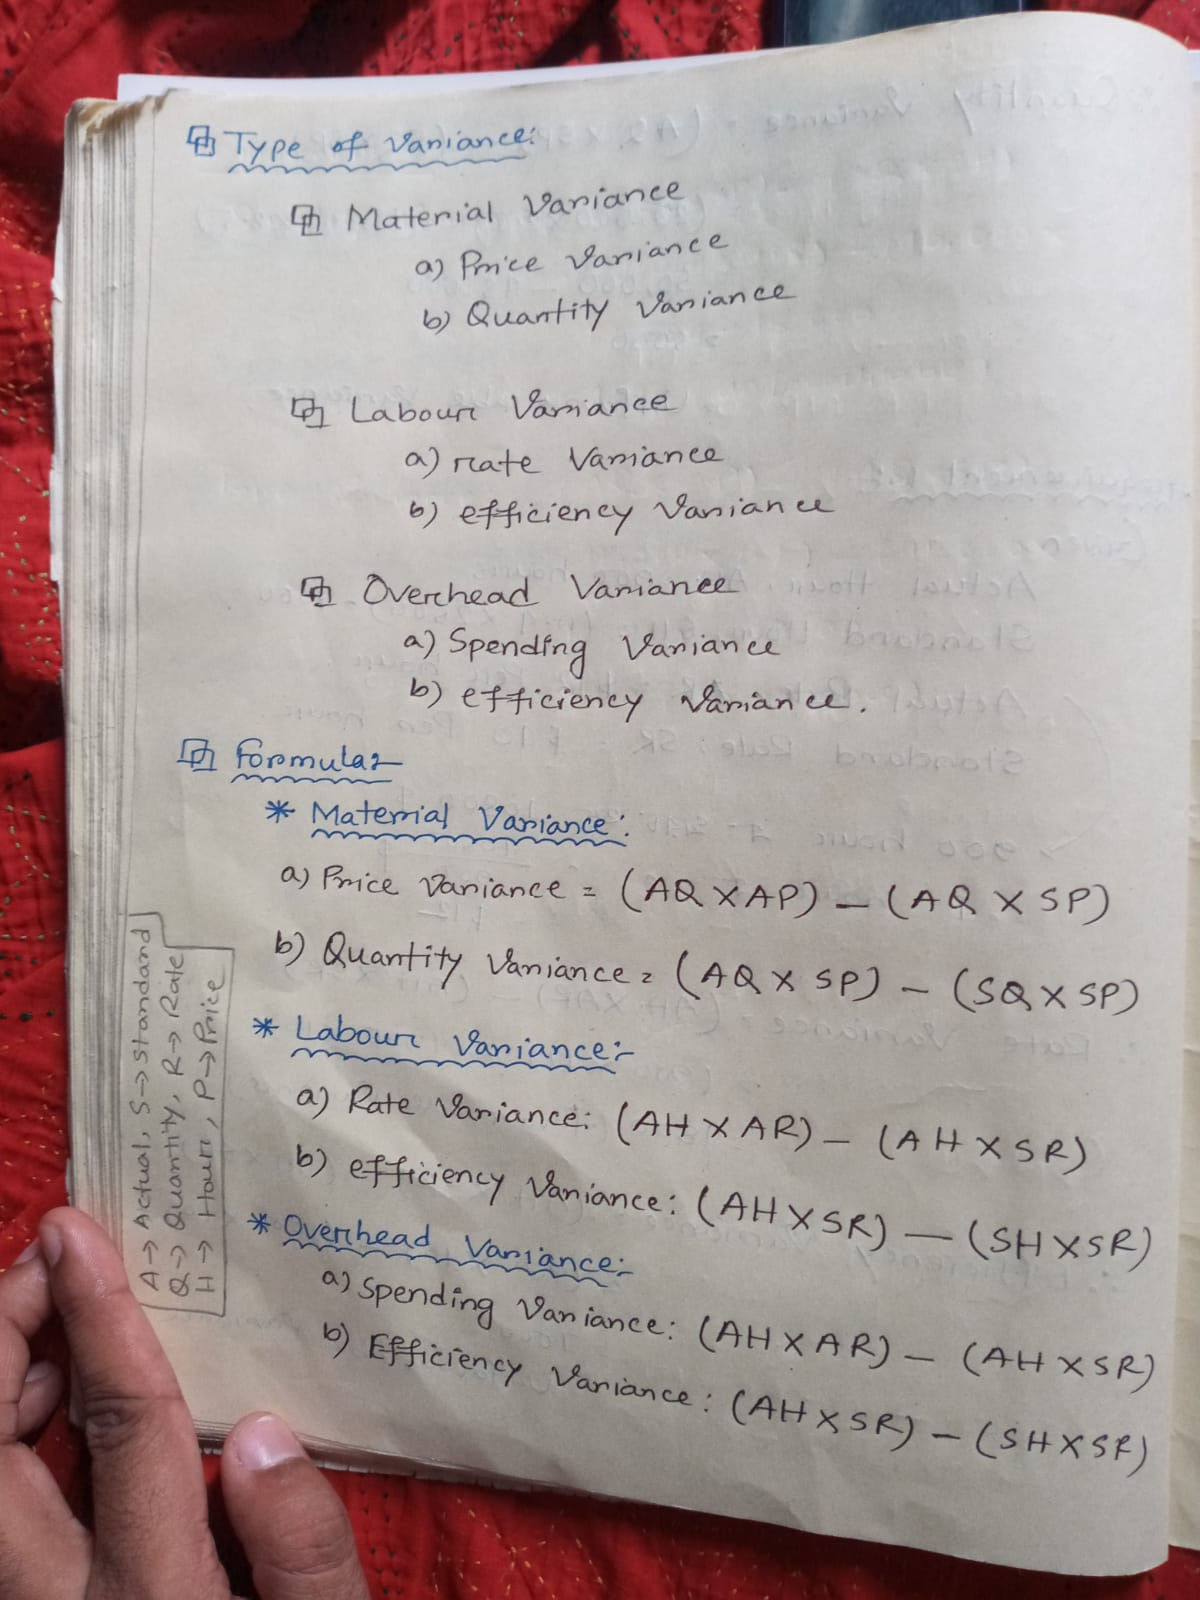 Type of Variance:
Material Variance
a) Price Variance
b) Quantity Variance
Labour Variance
a) rate Variance
b) efficiency Variance
Overhead Variance
a) Spending Variance
b) efficiency Variance.
Formula:-
* Material Variance:
a) Price Variance = (AQ X AP) - (AQ X SP)
b) Quantity Variance = (AQ X SP) - (SQ X SP)
* Labour Variance:-
a) Rate Variance: (AH X AR) - (AH X SR)
b) efficiency Variance: (AH X SR) - (SH X SR)
* Overhead Variance:-
a) Spending Variance: (AH X AR) - (AH X SR)
b) Efficiency Variance: (AH X SR) - (SH X SR)
A → Actual, S → Standard
Q → Quantity, R → Rate
H → Hour, P → Price